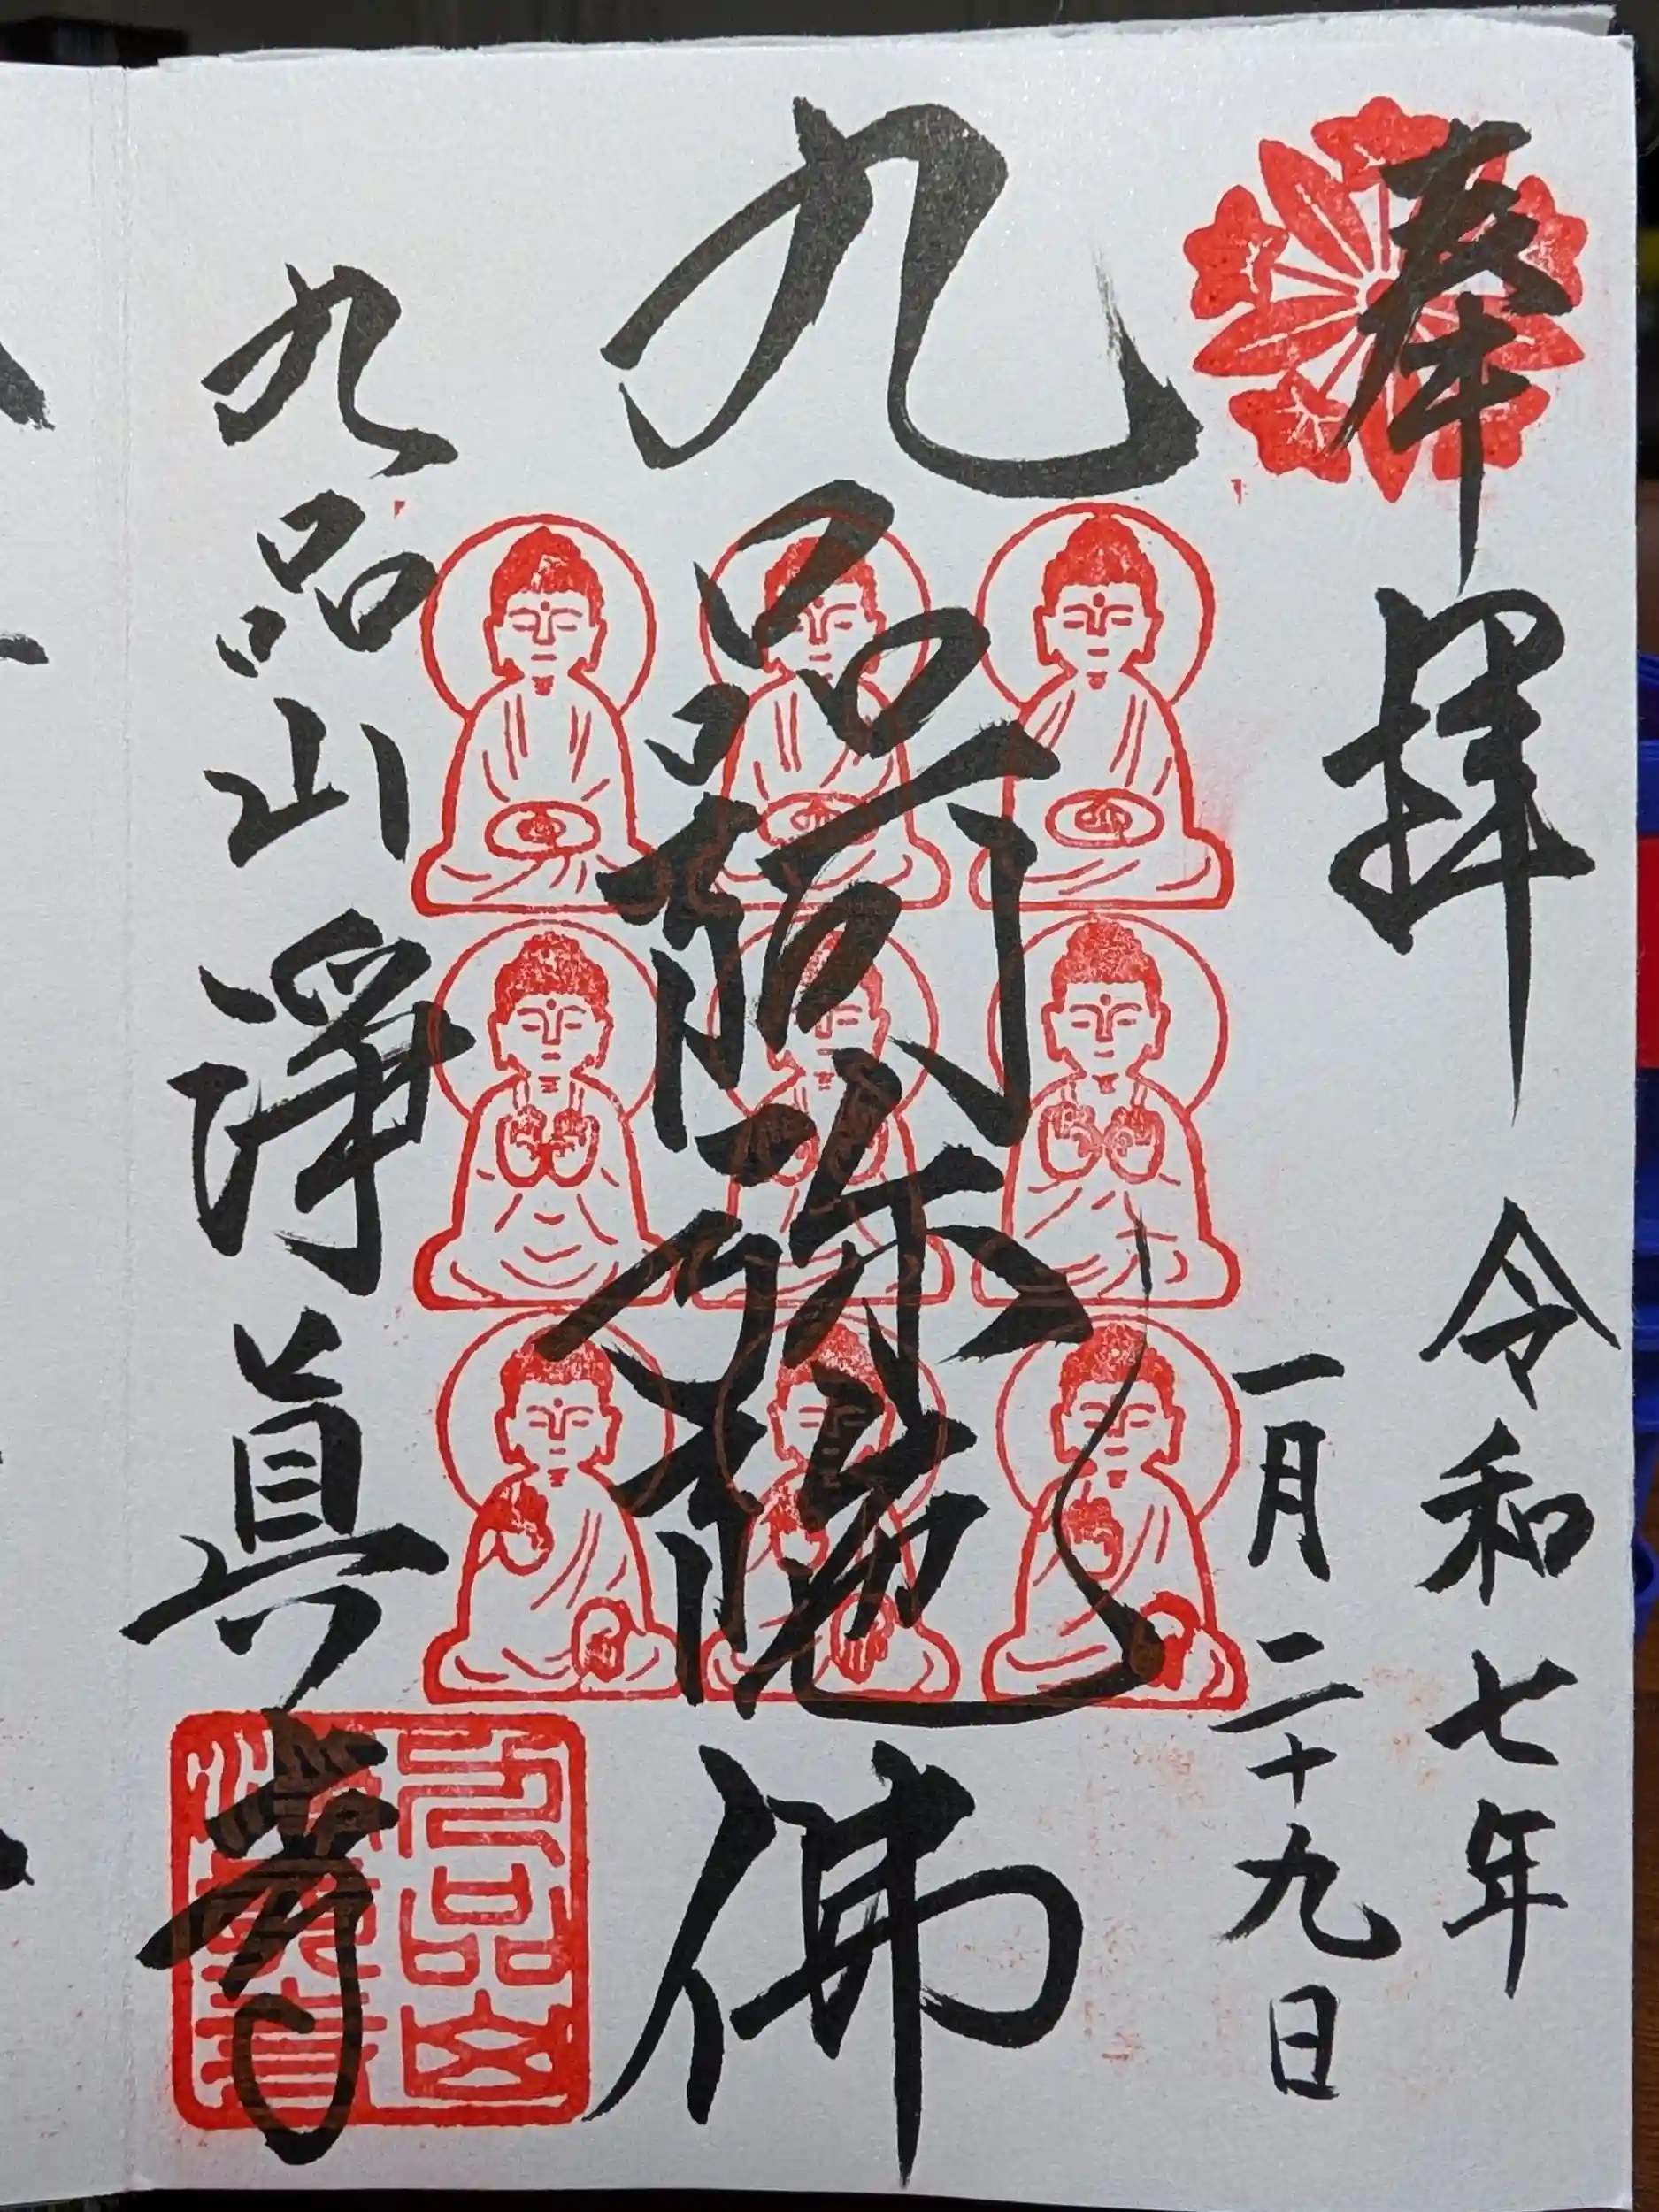 奉拝
令和七年
一月二十九日
九品阿弥陀佛
九品山淨眞寺